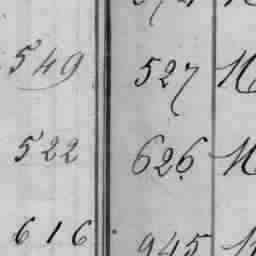 549 527 N
522 626 N
616 945